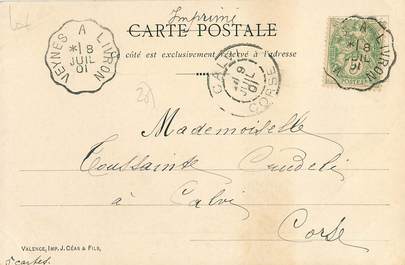 Imprimé
CARTE POSTALE
Ce côté est exclusivement réservé à l'adresse
VEYNES A LIVRON
*18
JUIL
01
CALVI
9
JUIL
01
CORSE
VEYNES A LIVRON
*18
JUIL
01
Mademoiselle
Toussainte Cundeli
à Calvi
Corse
VALENCE, IMP. J. CÉAS & FILS,
5 cartes.